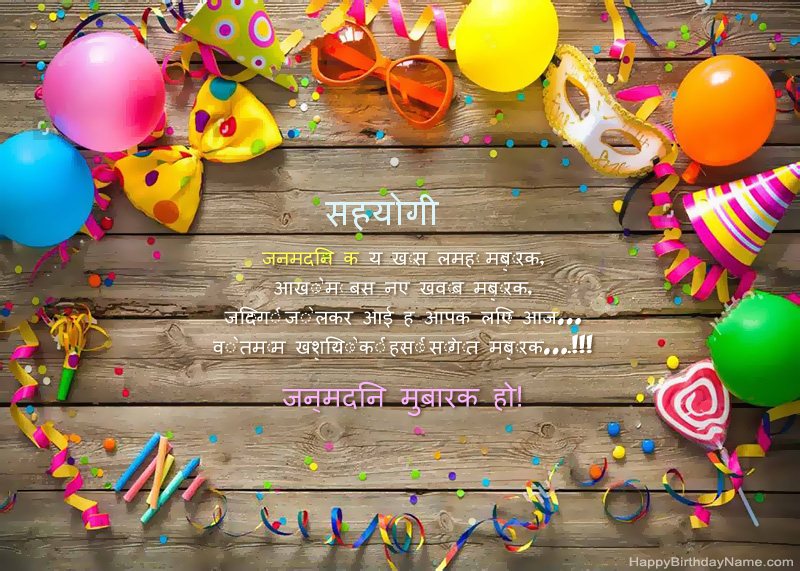 सहयोगी
जनमदनि क य खास लमह मबारक,
आखों में बस नए खवाब मबारक,
जदिगी जो लेकर आई ह आपक लएि आज...
वो तमाम खशयिों की हसीं सौगात मबारक...!!!
जन्मदनि मुबारक हो!
HappyBirthdayName.com